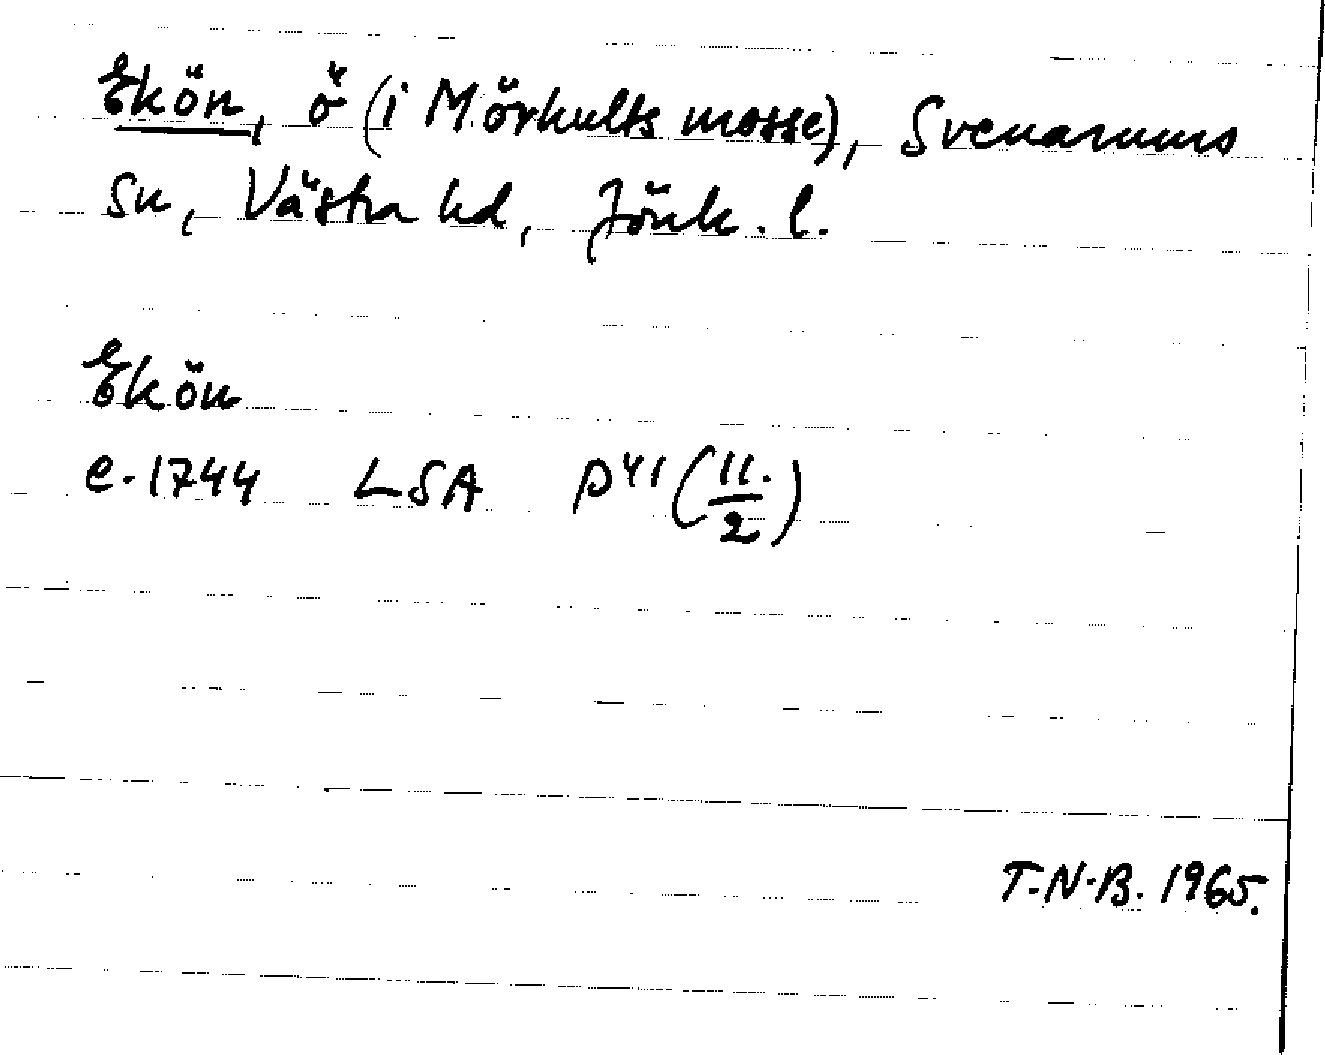 Ekön, ö (i Mörhults mosse), Svenarums
sn, Västra hd, Jönk. l.
Ekön
e. 1744 LSA P41 (11./2)
T.N.B. 1965.